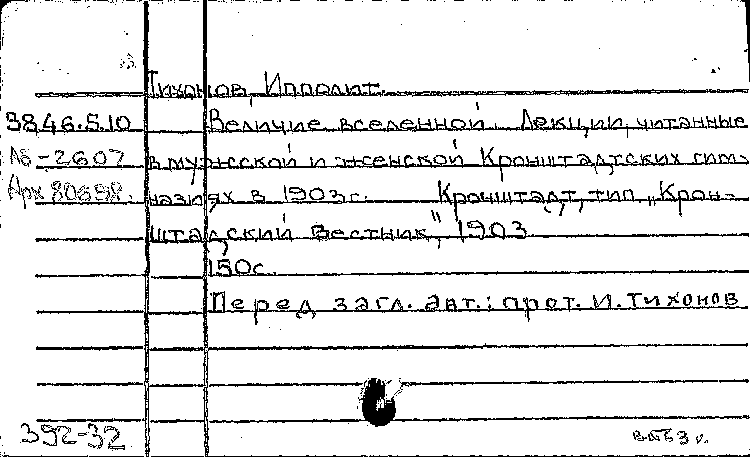 Тихонов, Ипполит.
9846.5.10 Величие вселенной. Лекции, читанные
Аб-2607 в мужской и женской Кронштадтских гим-
Арх 80698. назиях в 1903 г. Кронштадт, тип. „Крон-
штадский Вестник", 1903
150 с.
Перед загл. авт.: прот. И. Тихонов
392-32